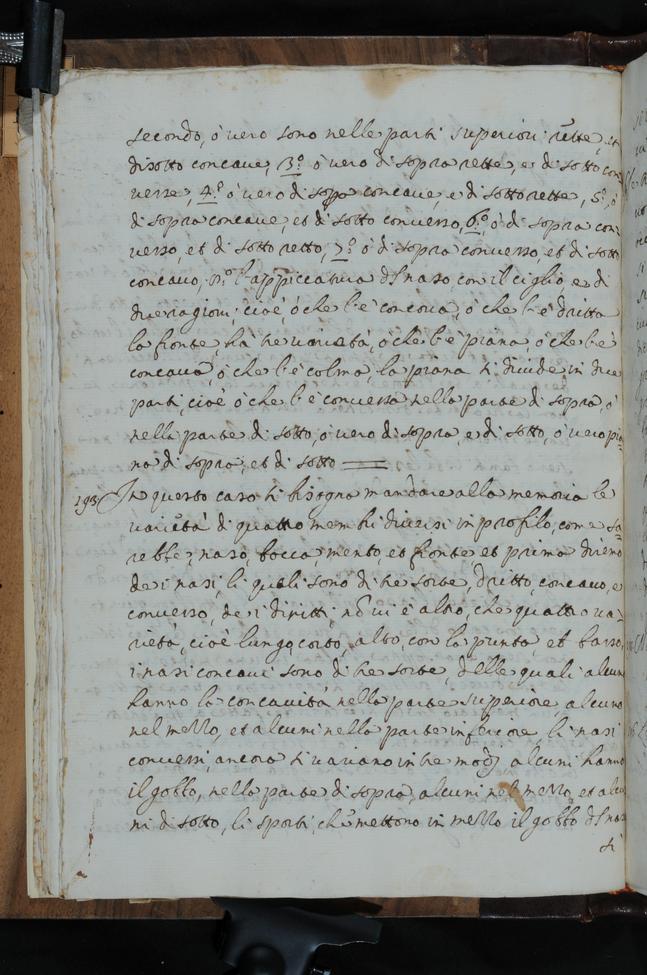 secondo, ò vero sono nelle parti superiori rette, et
disotto concaue, 3.º ò vero di sopra rette, e di sotto con
uerse, 4.º ò vero di sopra concaue, e di sotto rette, 5.º, ò
di sopra concaue, et di sotto conuerso, 6.º, ò di sopra con
uerso, et di sotto retto, 7.º ò di sopra conuerso, et di sotto
concauo, l'appiccatura del naso, con il ciglio e di
due ragioni, cioè, ò che l'è concaua, ò che l'è dritta
la fronte, ha tre uarietà, ò che l'è piana, ò che l'è
concaua, ò che l'è colma, la piana si diuide in due
parti, cioè ò che l'è conuersa nella parte di sopra, ò
nella parte di sotto, ò vero di sopra, e di sotto, ò vero pia=
na di sopra, et di sotto
193 In questo caso ti bisogna mandare alla memoria le
uarietà di quatto membri diuersi in profilo, come sa=
rebbe, naso, bocca, mento, et fronte, et prima diremo
de i nasi, li quali sono di tre sorte, dritto, concauo, e
conuerso, de i diritti, nõ ui è altro, che quattro ua=
rietà, cioè lungo, corto, alto, con la punta, et basso,
i nasi concaui sono di tre sorte, delle quali alcuni
hanno la concauità nella parte superiore, alcuno
nel mezzo, et alcuni nella parte inferiore, li nasi
conuersi, ancora si uariano in tre modj alcuni hanno
il gobbo, nella parte di sopra, alcuni nel mezzo, et alcu
ni di sotto, li sporti, che mettono in mezzo il gobbo del naso
si